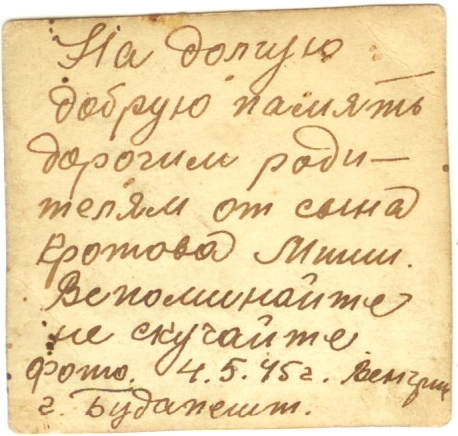 На долгую
добрую память
дорогим роди-
телям от сына
Кротова Миши.
Вспоминайте
не скучайте
Фото. 4.5.45г. Венгрия
г. Будапешт.